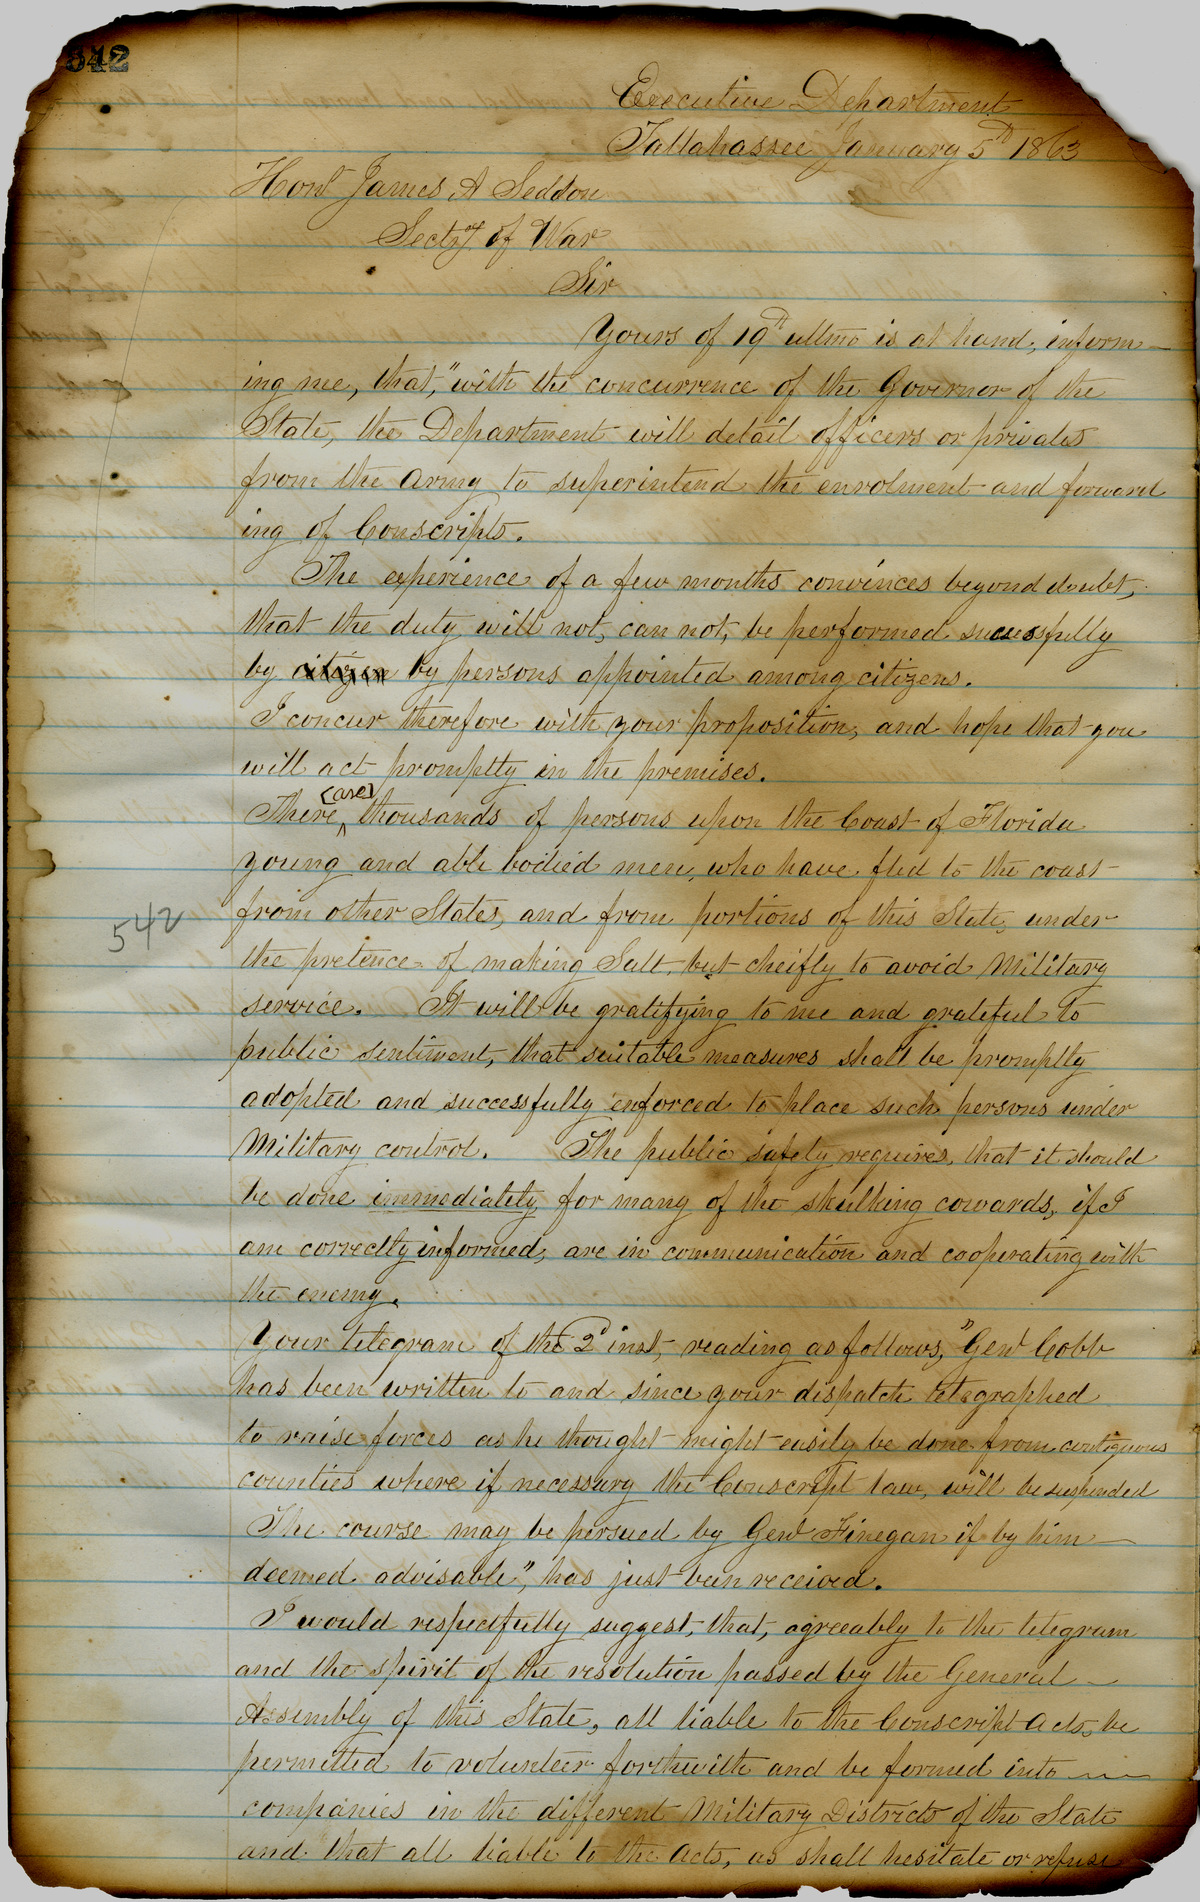 542
Executive Department
Tallahassee January 5th 1863
Honl James A Seddon
Secty of War
Sir
Yours of 19th ultmo is at hand, inform-
ing me, that, "with the concurrence of the Governor of the
State, the Department will detail officers or privates
from the Army to superintend the enrolment and forward
ing of Conscripts.
The experience of a few months convinces beyond doubt,
that the duty will not, can not, be performed successfully
by citizen by persons appointed among citizens.
I concur therefore with your proposition, and hope that you
will act promptly in the premises.
(are)
There thousands of persons upon the Coast of Florida
young and able bodied men, who have fled to the coast
from other States, and from portions of this State, under
542
the pretence of making Salt, but cheifly to avoid Military
service. It will be gratifying to me and grateful to
public sentiment, that suitable measures shall be promptly
adopted and successfully enforced to place such persons under
Military control. The public safety requires, that it should
be done immediately, for many of the skulking cowards, if I
am correctly informed, are in communication and cooperating with
the enemy.
Your telegram of the 2d inst, reading as follows, "Genl Cobb
has been written to and since your dispatch telegraphed
to raise forces as he thought might easily be done from contiguous
counties where if necessary the Conscript law, will be suspended
The course may be persued by Genl Finegan if by him
deemed advisable", has just been received.
I would respectfully suggest, that, agreeably to the telegram
and the spirit of the resolution passed by the General
Assembly of this State, all liable to the Conscript Acts, be
permitted to volunteer forthwith and be formed into
companies in the different Military Districts of the State
and that all liable to the Acts, as shall hesitate or refuse